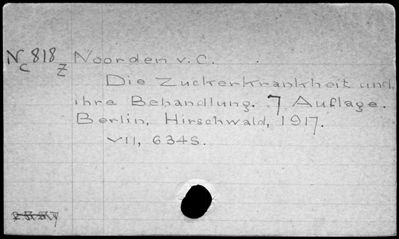 Nc 818z Noorden v. C.
Die Zuckerkrankheit und
ihre Behandlung. 7 Auflage.
Berlin, Hirschwald, 1917.
VII, 634S.